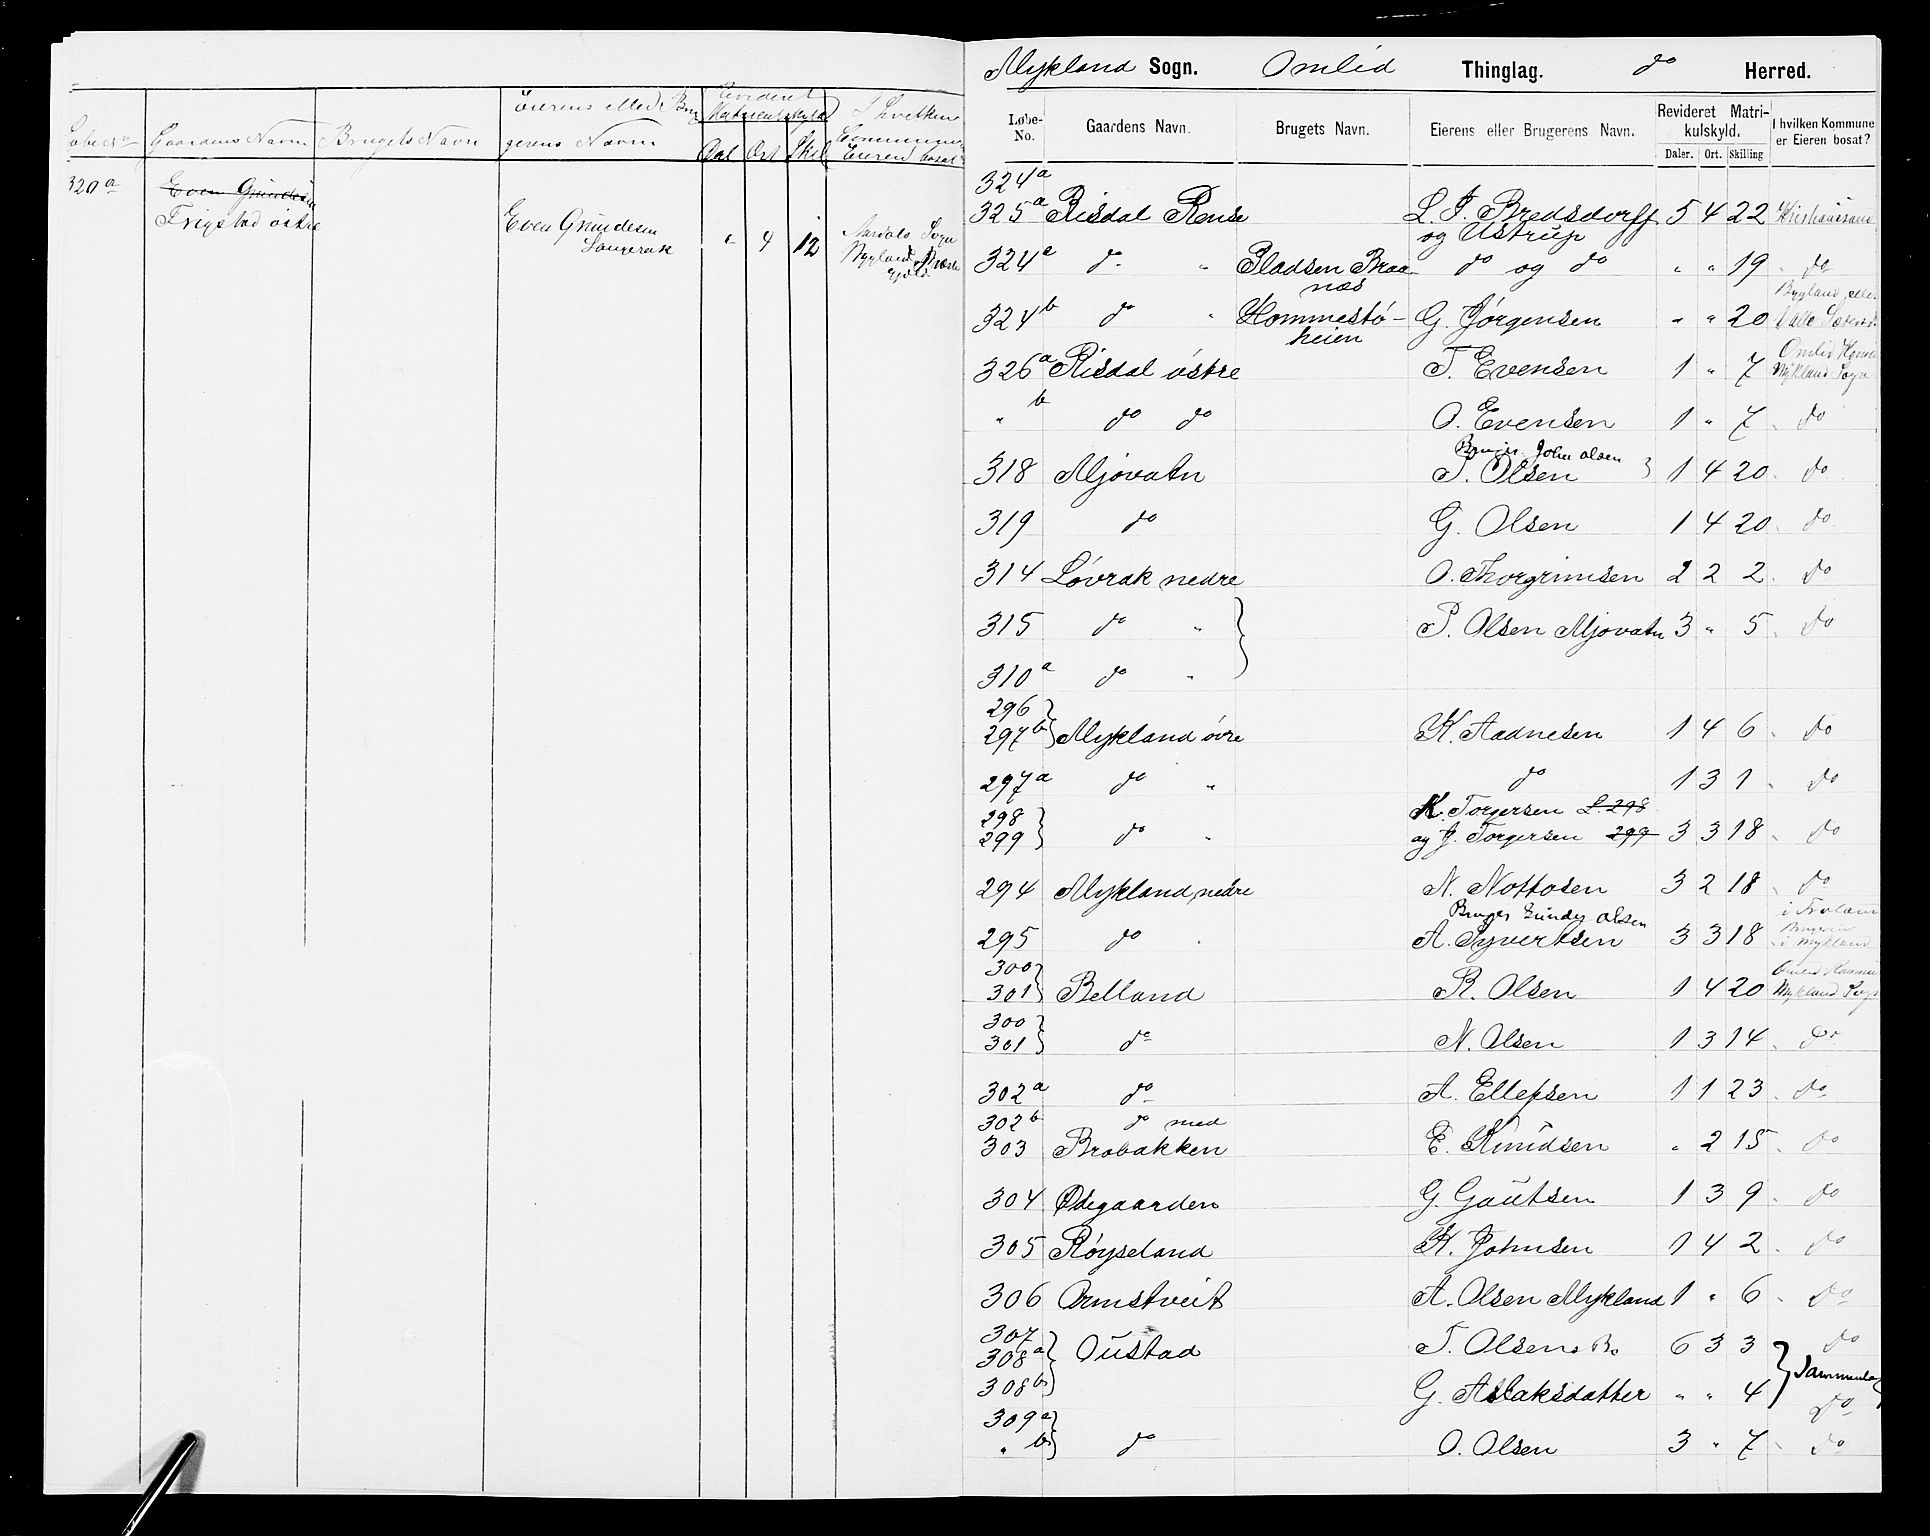 Løbe No Gaardens Navn Brugets Navn Eierens eller Bru
gerens Navn Revideret
Matriculskyld
Dal Ort Skil I hvilken
Commune er
Eieren bosat
320a Even Grundesen
Frigstad østre Even Grundesen
Saugerak " 4 12 Sogn
Mykland Sogn. Omlid Thinglag. do Herred.
Løbe-No. Gaardens Navn. Brugets Navn. Eierens eller Brugerens Navn. Revideret Matri-kulskyld. Daler. Ort. Skilling I hvilken Kommune er Eieren bosat?
324a
325a Risdal Rense L. J. Bredsdorff 5 4 22 Kristiansand
og Ustrup
324a do " Pladsen Braa- do og do " " 19 " do
næs
324b do " Hommestø- G. Jørgensen " " 20 Bygland eller
heien Valle
326a Risdal østre T. Evensen 1 " 7 Omlid Komm
Mykland Sogn
" b do do O. Evensen 1 " 7 " do
Bruger John Olsen
318 Mjovatn T. Olsen 1 4 20 " do
319 do G. Olsen 1 4 20 " do
314 Løvrak nedre O. Thorgrimsen 2 2 2 " do
315 do " P. Olsen Mjovatn 3 " 5 " do
310a do "
296
297b Mykland øvre K. Aadnesen 1 4 6 " do
297a do " do 1 3 1 " do
298 K. Torgersen L. 298
299 do " og J. Torgersen 299 3 3 18 " do
294 Mykland nedre N. Nottosen 3 2 18 " do
Bruger Gunder Olsen i Froland
295 do " A. Syvertsen 3 3 18 Brugeren
i Mykland
300 Omlid Komm
301 Belland R. Olsen 1 4 20 Mykland Sogn
300
301 do N. Olsen 1 3 14 " do
302a do A. Ellefsen 1 1 23 " do
302b do med
303 Brobakken E. Knudsen " 2 15 " do
304 Ødegaarden G. Gautsen 1 3 9 " do
305 Røyseland K. Johnsen 1 4 2 " do
306 Ormstveit A. Olsen Mykland 1 " 6 " do
307
308a Oustad T. Olsen 6 3 3 do
308b G. Aslaksdatter " " 4 Sammenlag
do
309a
" b do O. Olsen 3 " 7 " do